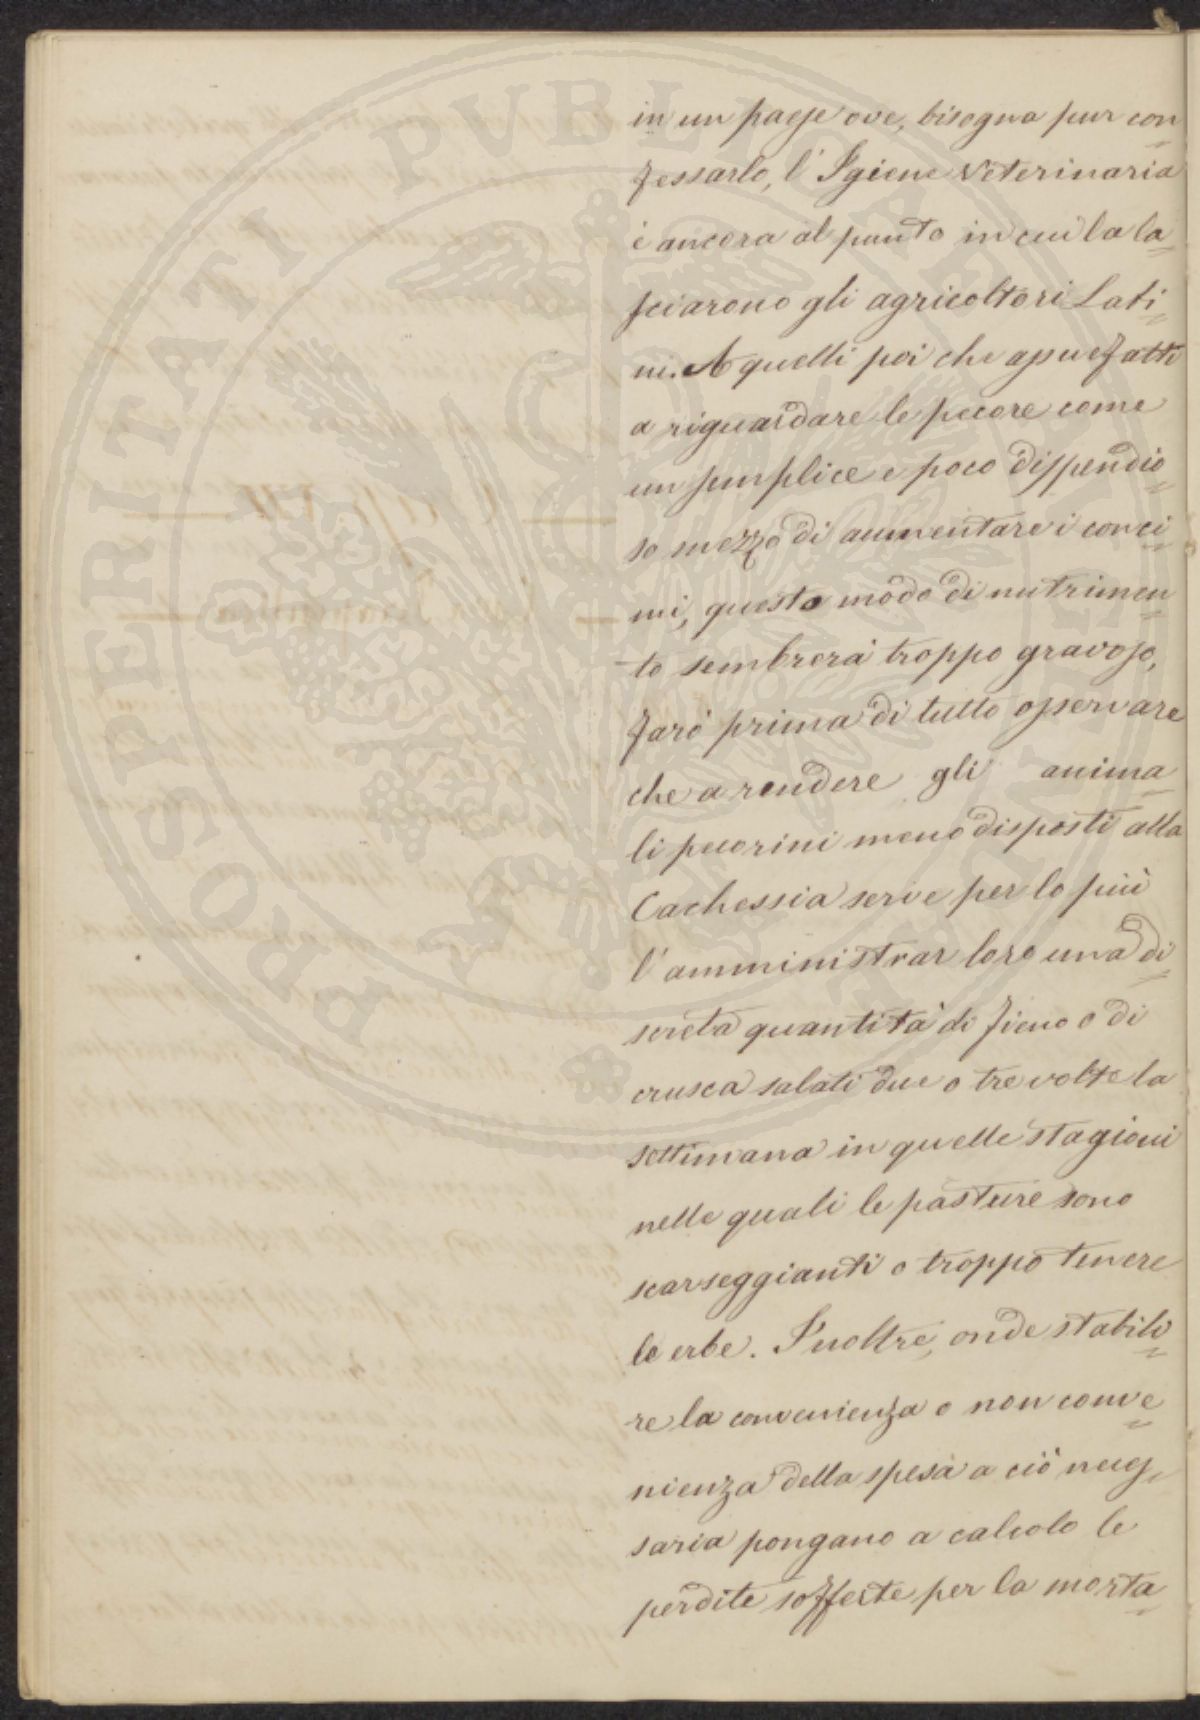 in un paese ove, bisogna pur con
fessarlo, l'Igiene Veterinaria
è ancora al punto in cui la la
sciarono gli agricoltori Lati
ni. A quelli poi che assuefatti
a riguardare le pecore come
un semplice e poco dispendio
so mezzo di aumentare i conci
mi, questo modo di nutrimen
to sembrerà troppo gravoso,
farò prima di tutto osservare
che a rendere gli anima
li pecorini meno disposti alla
Cachessia serve per lo più
l'amministrar loro una di
screta quantità di fieno o di
crusca salati due o tre volte la
settimana in quelle stagioni
nelle quali le pasture sono
scarseggianti o troppo tenere
le erbe. Inoltre, onde stabili
re la convenienza o non conve
nienza della spesa a ciò neces
saria pongano a calcolo le
perdite sofferte per la morta
PROSPERITATI PVBLICAE